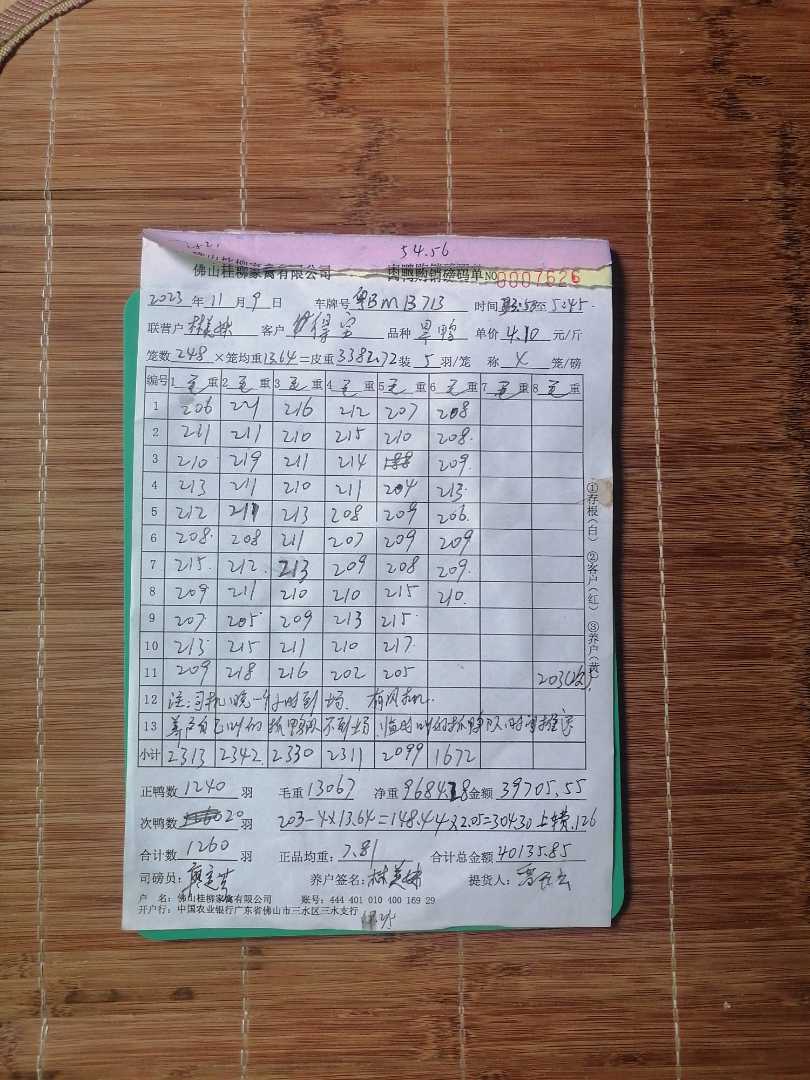 54.56
佛山桂柳家禽有限公司 肉鸭购销磅码单 NO 0007626
2023 年 11 月 9 日 车牌号 粤BMB713 时间 至 5:45
联营户 林美妹 客户 得宝 品种 旱鸭 单价 4.10 元/斤
笼数 248 ×笼均重 13.64 =皮重 3382.72 装 5 羽/笼 称 4 笼/磅
编号 1 毛 重 2 毛 重 3 毛 重 4 毛 重 5 毛 重 6 毛 重 7 毛 重 8 毛 重
1 206 221 216 212 207 208
2 211 211 210 215 210 208
3 210 219 211 214 209
4 213 211 210 211 204 213
5 212 211 213 208 209 206
6 208 208 211 207 209 209
7 215 212 213 209 208 209
8 209 211 210 210 215 210
9 207 205 209 213 215
10 213 215 211 210 217
11 209 218 216 202 205 203(次)
12 注:司机晚一个小时到场. 有风机.
13 养户自己叫的抓鸭队不到场 临时叫的抓鸭队
小计 2313 2342 2330 2311 2099 1672
正鸭数 1240 羽 毛重 13067 净重 9684.28 金额 39705.55
次鸭数 20 羽 203-4×13.64=148.44×2.05=304.30 126
合计数 1260 羽 正品均重: 7.81 合计总金额 40135.85
司磅员: 养户签名: 林美妹 提货人:
户 名: 佛山桂柳家禽有限公司 账号: 444 401 010 400 169 29
开户行: 中国农业银行广东省佛山市三水区三水支行
①存根(白) ②客户(红) ③养户(黄)